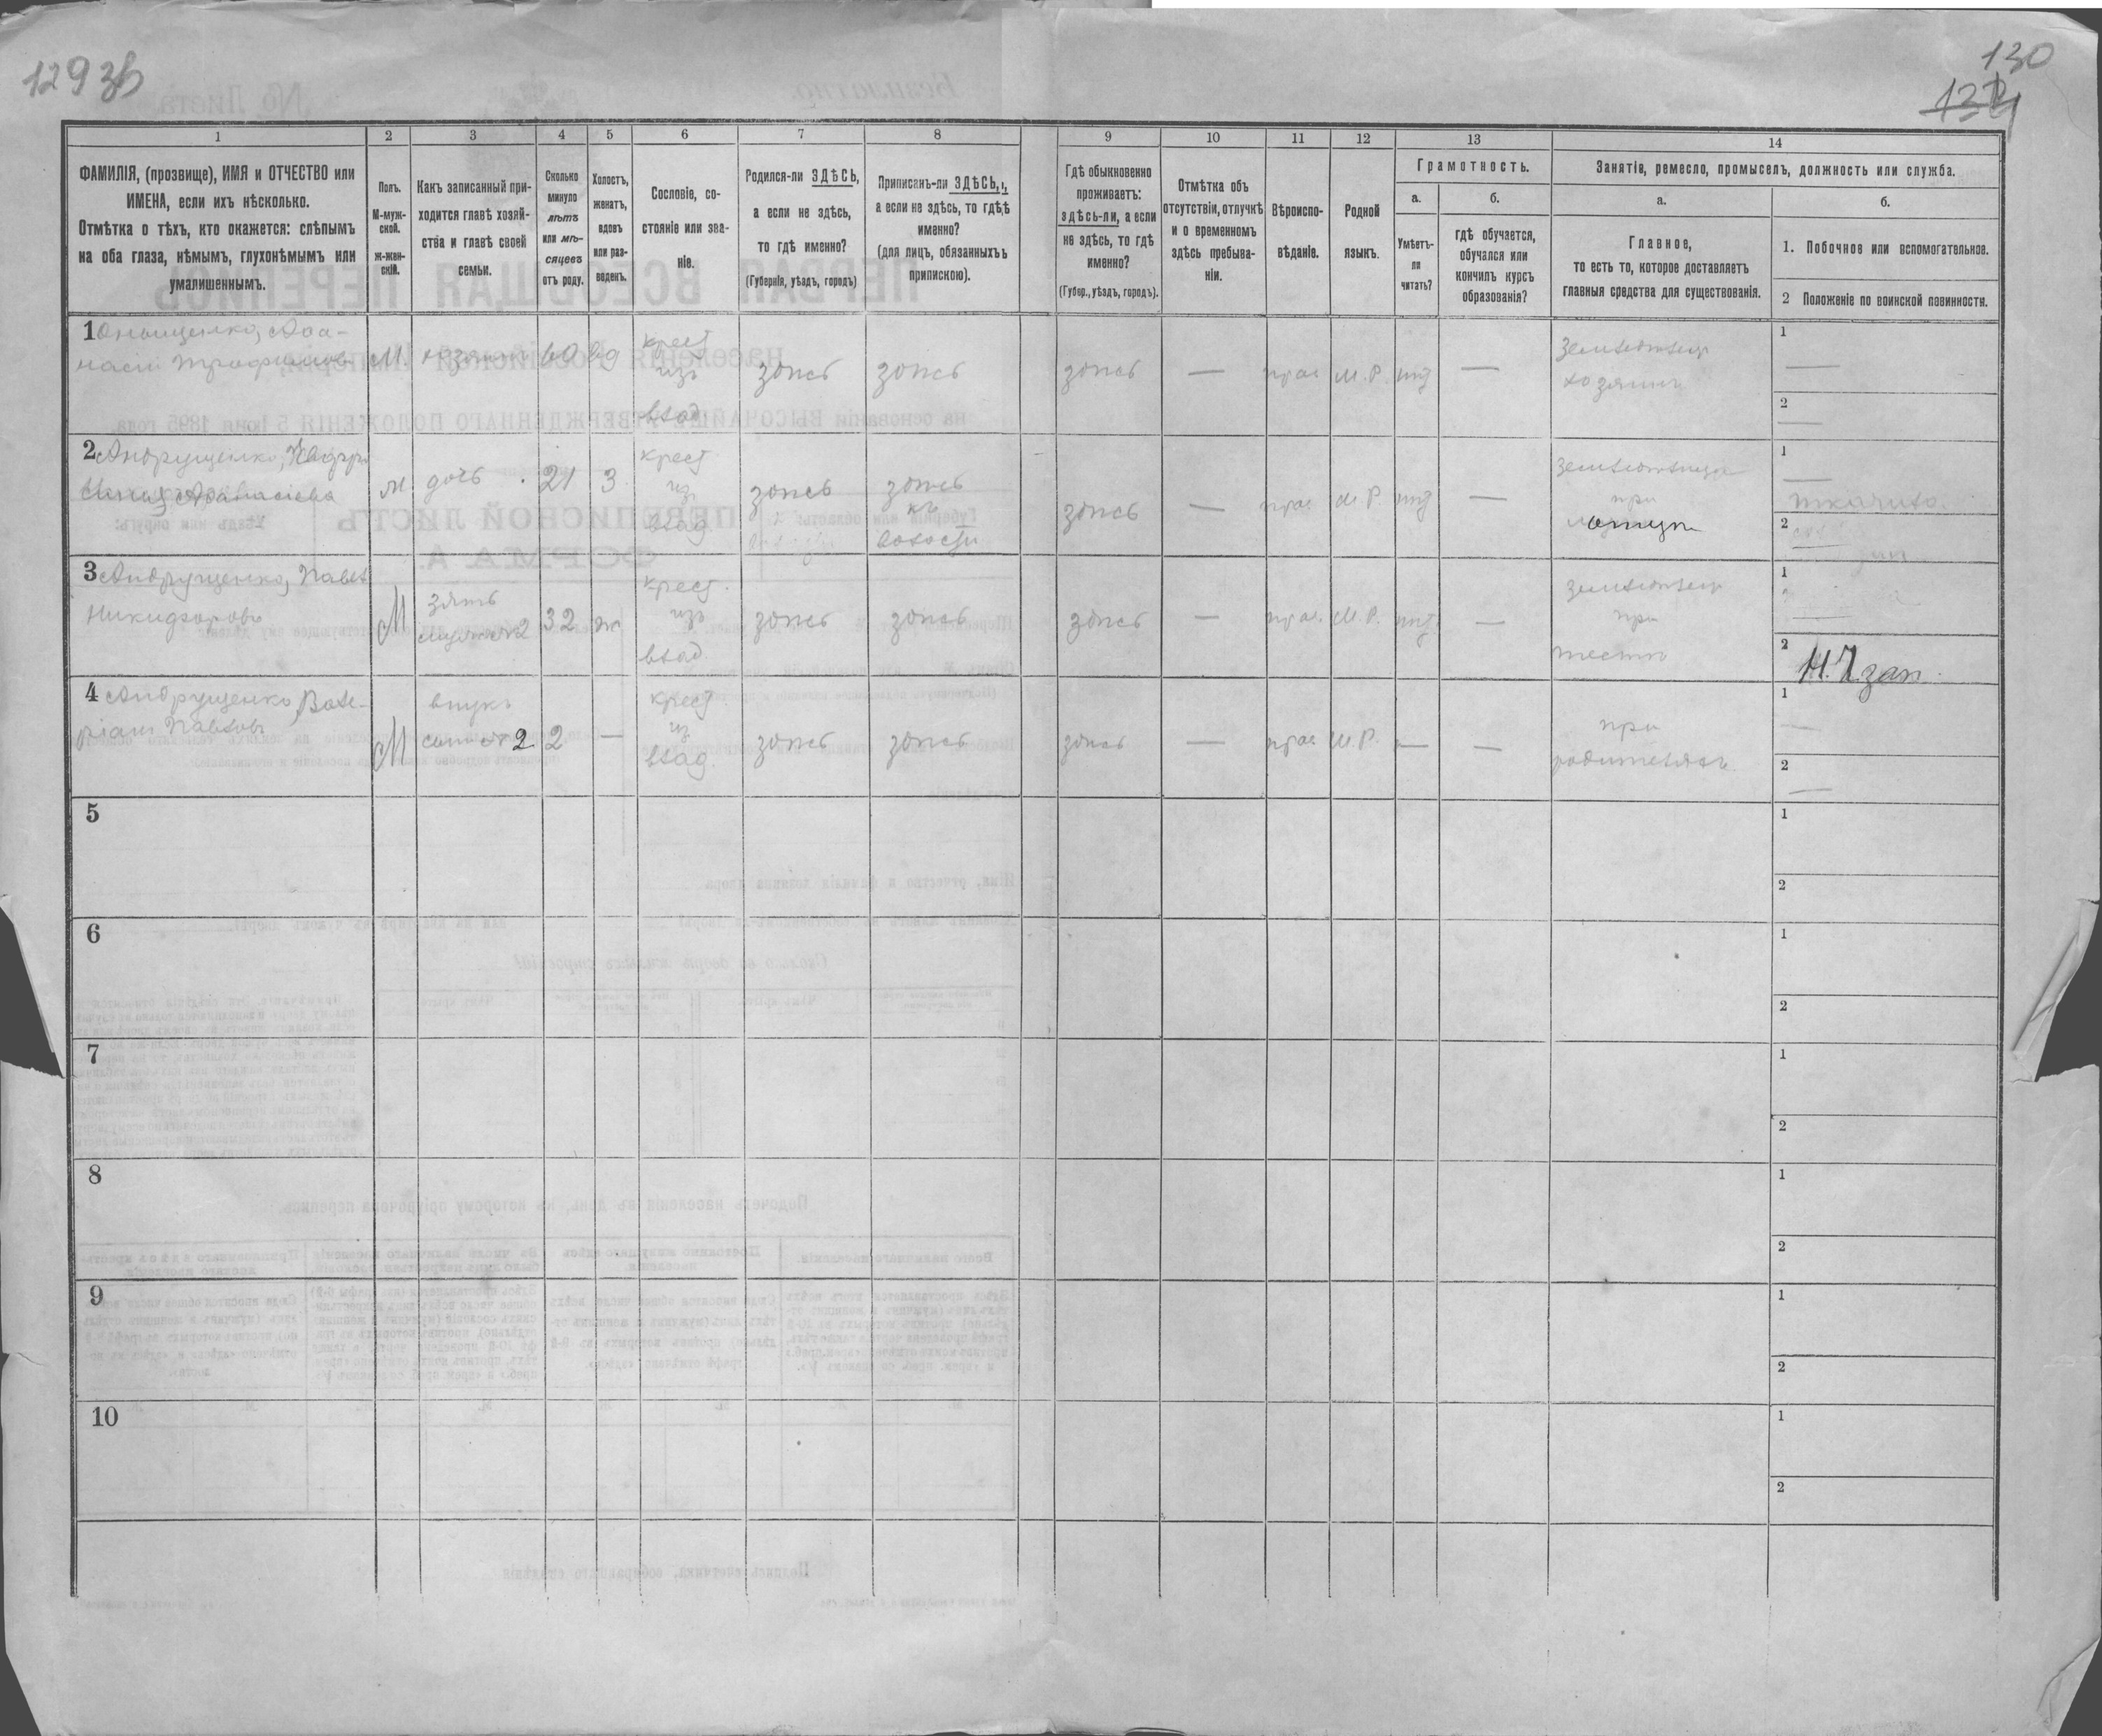 129 зв
130
1
2
3
4
5
6
7
8
9
10
11
12
13
14
ФАМИЛІЯ, (прозвище), ИМЯ и ОТЧЕСТВО или
ИМЕНА, если ихъ нѣсколько.
Отмѣтка о тѣхъ, кто окажется: слѣпымъ
на оба глаза, нѣмымъ, глухонѣмымъ или
умалишеннымъ.
Полъ.
М-муж-
ской.
ж-жен-
скій.
Какъ записанный при-
ходится главѣ хозяй-
ства и главѣ своей
семьи.
Сколько
минуло
лѣтъ
или мѣ-
сяцевъ
отъ роду.
Холостъ,
женатъ,
вдовъ
или раз-
веденъ.
Сословіе, со-
стояніе или зва-
ніе.
Родился-ли ЗДѢСЬ,
а если не здѣсь,
то гдѣ именно?
(Губернія, уѣздъ, городъ)
Приписанъ-ли ЗДѢСЬ,
а если не здѣсь, то гдѣ
именно?
(для лицъ, обязанныхъ
припискою).
Гдѣ обыкновенно
проживаетъ:
здѣсь-ли, а если
не здѣсь, то гдѣ
именно?
(Губер., уѣздъ, городъ).
Отмѣтка объ
отсутствіи, отлучкѣ
и о временномъ
здѣсь пребыва-
ніи.
Вѣроиспо-
вѣданіе.
Родной
языкъ.
Грамотность.
а.
Умѣетъ-
ли
читать?
б.
гдѣ обучается,
обучался или
кончилъ курсъ
образованія?
Занятія, ремесло, промыселъ, должность или служба.
а.
Главное,
то есть то, которое доставляетъ
главныя средства для существованія.
б.
1. Побочное или вспомогательное.
2 Положеніе по воинской повинности.
1
Трофимов
М
хозяинъ
60
вд
крест
из
влад.
здѣсь
здѣсь
здѣсь
—
прав
М.Р.
нѣт
—
Земледѣлец
хозяинъ
1
—
2
—
2 Андрущенко,
Афанасіева
дочь
21
З
крест
из
влад
здѣсь
здѣсь
къ
волости
здѣсь
—
прав
М.Р.
нѣт
—
при
отцѣ
1
2
3 Андрущенко, Павел
Никифоровъ
М
зять
мужъ № 2
32
ж
крест.
из
влад.
здѣсь
здѣсь
здѣсь
—
прав.
М.Р.
нѣт
—
земледѣлец
при
тестѣ
1
2
зап.
4 Андрущенко, Вале-
ріанъ Павловъ
М
внукъ
сынъ № 2
2
—
крест
из
влад.
здѣсь
здѣсь
здѣсь
—
прав
М.Р.
—
—
при
родителяхъ
1
—
2
—
5
1
2
6
1
2
7
1
2
8
1
2
9
1
2
10
1
2